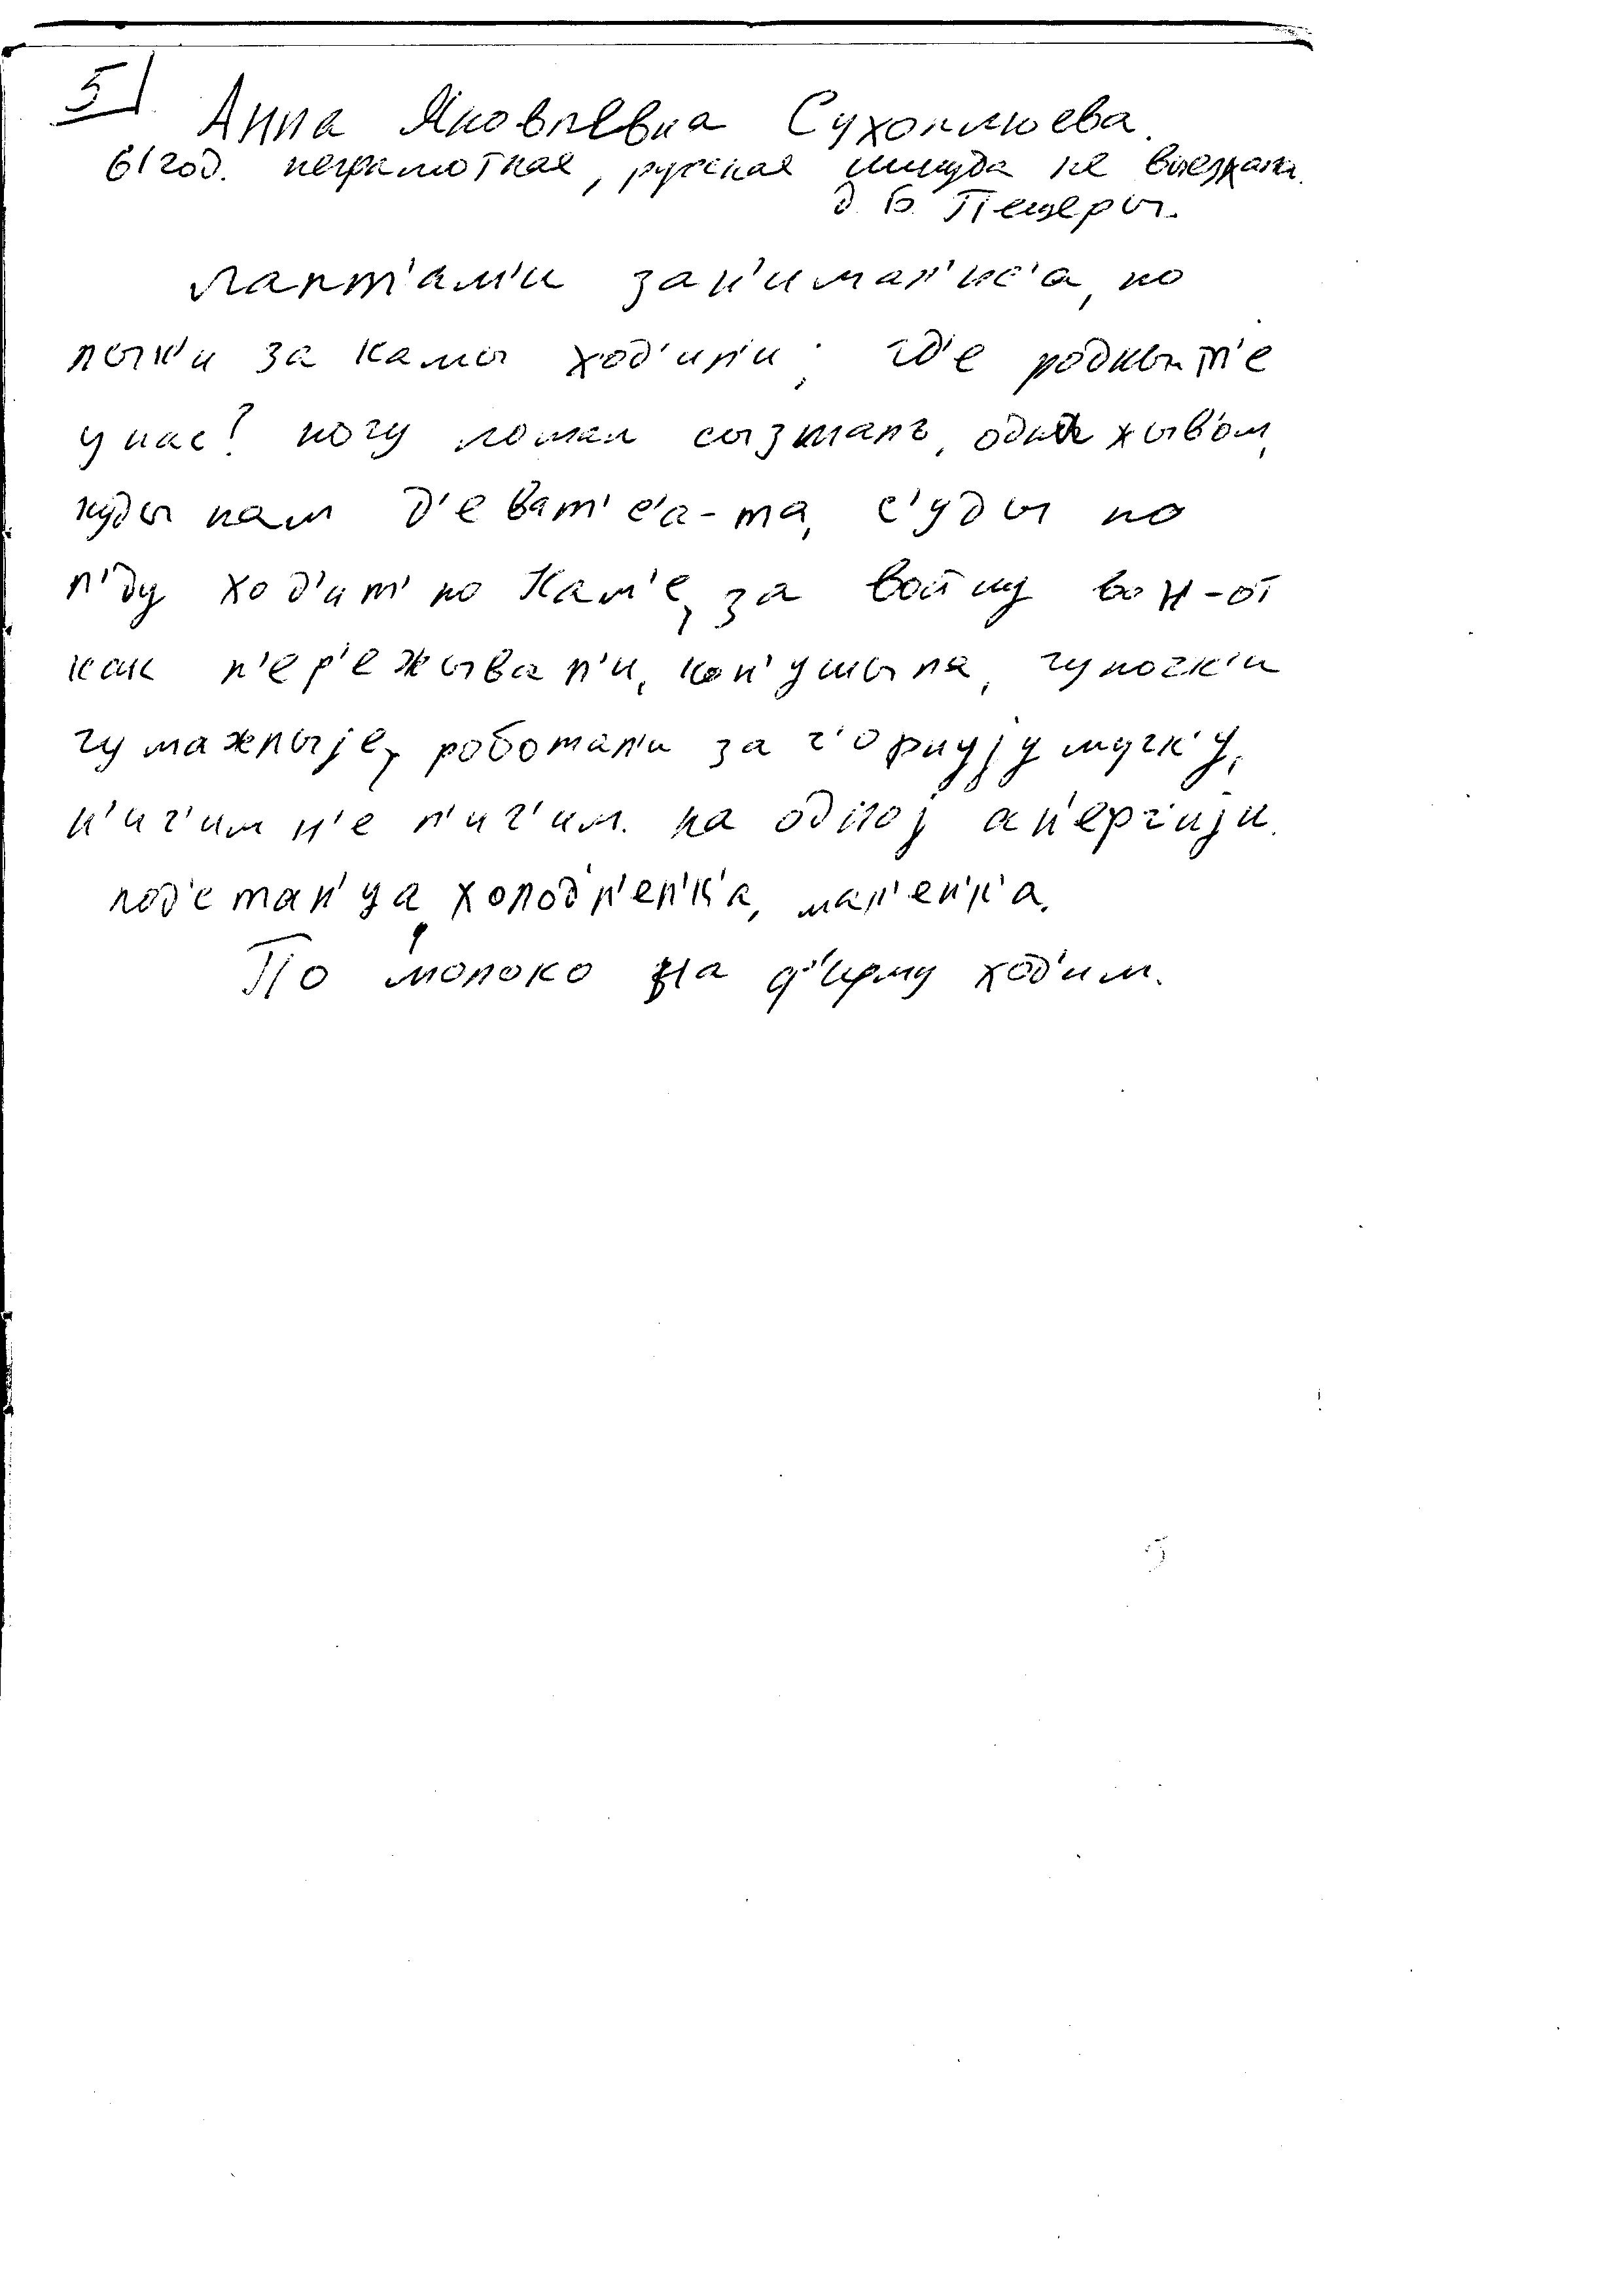 5
Анна Яковлевна Сухоплюева.
61 год. неграмотная, русская никуда не выезжала.
д. Б. Пещеры.
лапт'ам'и зан'имал'ис'а, по
лык'и за камы ход'ил'и; гд'е родиыт'е
у нас? ногу ломал сызмалъ, одна жыв'ом,
куды нам д'еват'с'а-та, с'уды по
л'ду ход'ит' по Кам'е, за войну вон-от
как п'ер'ежывал'и, кон'ушына, чулочк'и
гумажныје, роботал'и за ч'орнују мучк'у,
н'ич'им н'е л'ич'им. на одној ан'ергији.
под'стан'ца холод'н'ен'к'а, мал'ен'к'а.
По молоко на ф'ирму ход'им.